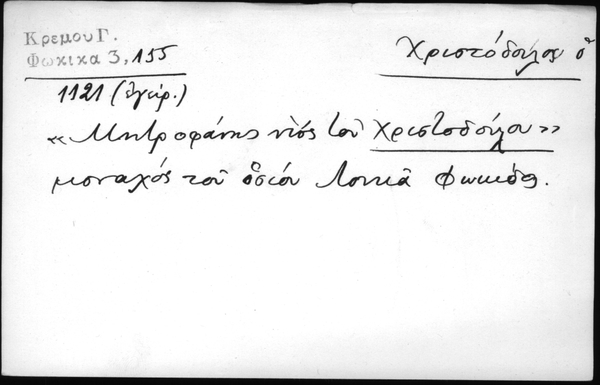 Κρεμου Γ.
Φωκικα 3, 155
Χριστόδουλος ὁ
1121 (ἐγείρ.)
«Μητροφάνης υἱός τοῦ Χριστοδούλου»
μοναχός τοῦ ὁσίου Λουκᾶ Φωκίδος.